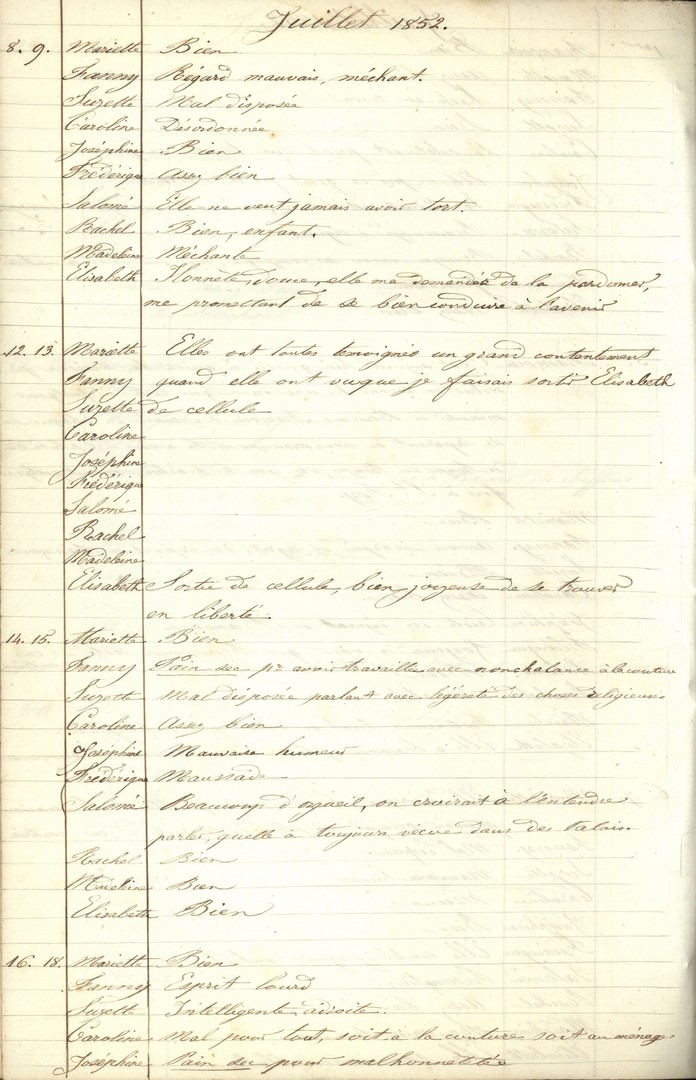 Juillet 1852.
8. 9. Mariette Bien
Fanny Régard mauvais, méchant.
Suzette Mal disposée
Caroline Désordonnée
Joséphine Bien
Frédérique Assez bien
Salomé Elle ne veut jamais avoir tort.
Rachel Bien, enfant.
Madeleine Méchante
Elisabeth Honnète, douce, elle me demandée de la pardonner,
me promettant de se bien conduire à l'avenir
12. 13. Mariette Elles ont toutes temoignés un grand contentement
Fanny quand elle ont vu que je faisais sortir Elisabeth
Suzette de cellule
Caroline
Joséphine
Frédérique
Salomé
Rachel
Madeleine
Elisabeth Sortie de cellule, bien joyeuse de se trouver
en liberté.
14. 15. Mariette Bien
Fanny Pain sec pr avoir travaillé avec nonchalance à la couture
Suzette Mal disposée parlant avec légéreté des choses religieuses
Caroline Assez bien
Joséphine Mauvaise humeur
Frédérique Maussade
Salomé Beaucoup d'orgueil, on croirait à l'entendre
parler, quelle à toujours vécue dans des Palais.
Rachel Bien
Madeleine Bien
Elisabeth Bien
16. 18. Mariette Bien
Fanny Esprit lourd
Suzette Intelligente, adroite.
Caroline Mal pour tout, soit à la couture soit au ménage
Joséphine Pain sec pour malhonnétetée